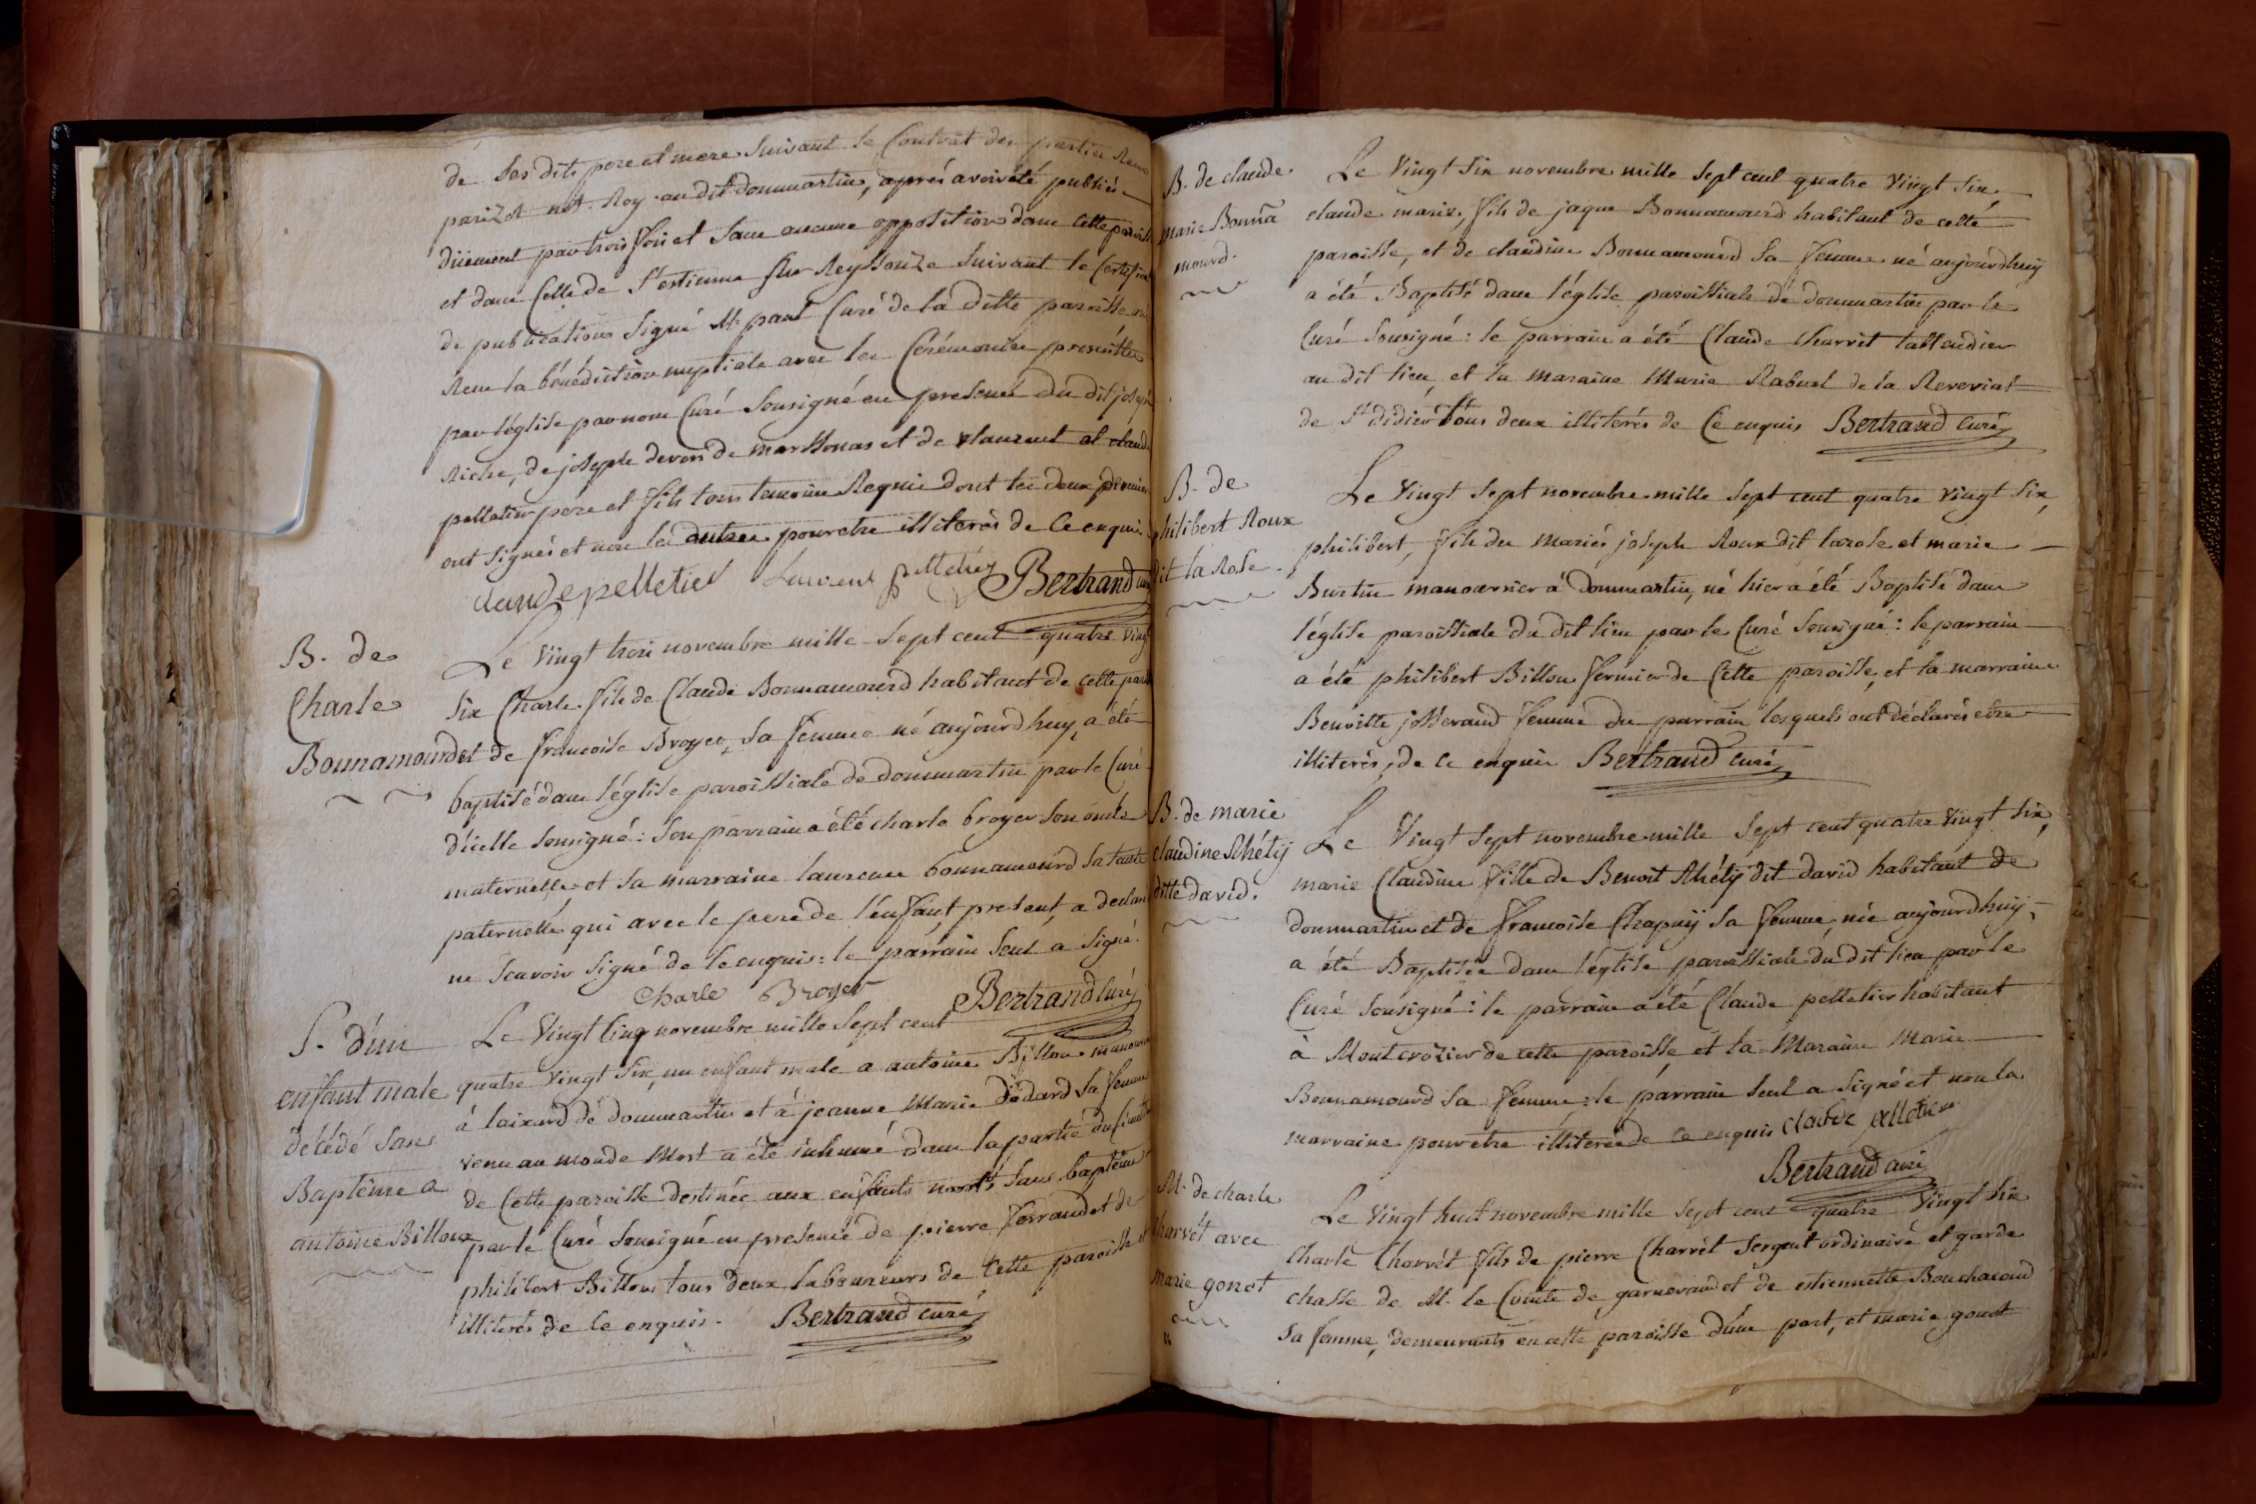 de ses dits pere et mere suivant le Contrat des parties Reçu
parizot not. Roy. au dit dommartin, après avoir été publiés
düement par trois fois et sans aucune opposition dans cette paroisse
et dans Celle de St estienne sur Reyssouze suivant le Certificat
de publications signé Mr paul Curé de la ditte paroisse
Recu la bénédiction nuptiale avec les Cérémonies prescrittes
par léglise par nous Curé sousigné en presence du dit joseph
Riche, de joseph devers de marssonas et de laurent et claude
pelletier pere et fils tous temoins Requis dont les deux derniers
ont signés et non les autres pour etre illiterés de Ce enquis
claude pelletier Laurent Bertrand curé
B. de
Charle
Bonnamourd
Le Vingt trois novembre mille sept cent quatre vingt
six Charle fils de Claude Bonnamourd habitant de cette paroisse
et de francoise Broyer, sa femme né aujourdhuy, a été
baptisé dans l'église paroissiale de dommartin par le Curé
d'icelle sousigné: son parrain a été charle broyer son oncle
maternelle et sa marraine laurence bonnamourd sa tante
paternelle qui avec le pere de l'enfant, present, a declaré
ne scavoir signé de Ce enquis: le parrain seul a signé.
Charle Broyer Bertrand Curé
S. d'un
enfant male
décédé sans
Baptême a
antoine Billoux
Le Vingt Cinq novembre mille sept cent
quatre vingt six, un enfant male a antoine Billoux manouvrier
à laixard de dommartin et à jeanne Marie Dédard sa femme
venu au monde Mort a été inhumé dans la partie du Cimetière
de Cette paroisse destinée aux enfants morts sans baptême
par le Curé sousigné en presence de pierre ferraud et de
philibert Billoux tous deux laboureurs de Cette paroisse et
illiterés de Ce enquis. Bertrand curé
B. de claude
marie Bonna
mourd.
Le Vingt six novembre mille sept cent quatre vingt six
claude marie, fils de jaque Bonnamourd habitant de cette
paroisse, et de claudine Bonnamourd sa femme né aujourdhuy
a été Baptisé dans l'église paroissiale de dommartin par le
Curé sousigné: le parrain a été Claude Charvet taillandier
au dit lieu, et la maraine Marie Rabuel de la Reveriat
de St didier tous deux illiterés de Ce enquis Bertrand Curé
B. de
philibert Roux
dit la Rose.
Le Vingt sept novembre mille sept cent quatre vingt six,
philibert, fils des mariés joseph Roux dit larose et marie
Burtin manouvrier à dommartin, né hier a été Baptisé dans
l'église paroissiale du dit lieu par le Curé sousigné: le parrain
a été philibert Billoux fermier de Cette paroisse, et la marraine
Benoitte josserand femme du parrain lesquels ont déclarés etre
illiterés, de Ce enquis Bertrand curé
B. de marie
claudine Rhéty
ditte david.
Le Vingt sept novembre mille sept cent quatre vingt six,
marie Claudine fille de Benoit Rhéty dit david habitant de
dommartin et de francoise Chapuy sa femme, née aujourdhuy,
a été Baptisée dans l'église paroissiale du dit lieu par le
Curé sousigné: le parrain a été Claude pelletier habitant
à Montcrozier de cette paroisse, et la Maraine Marie
Bonnamourd sa femme: le parrain seul a signé et non la
marraine pour etre illiterée de ce enquis claude pelletier
Bertrand curé
M. de charle
Charvet avec
marie gonot
Le Vingt huit novembre mille sept cent quatre vingt six
Charle Charvet fils de pierre Charvet sergent ordinaire et garde
chasse de M. le Comte de garnerand et de estiennette Bouchacourd
sa femme, demeurants en cette paroisse d'une part, et marie gonot